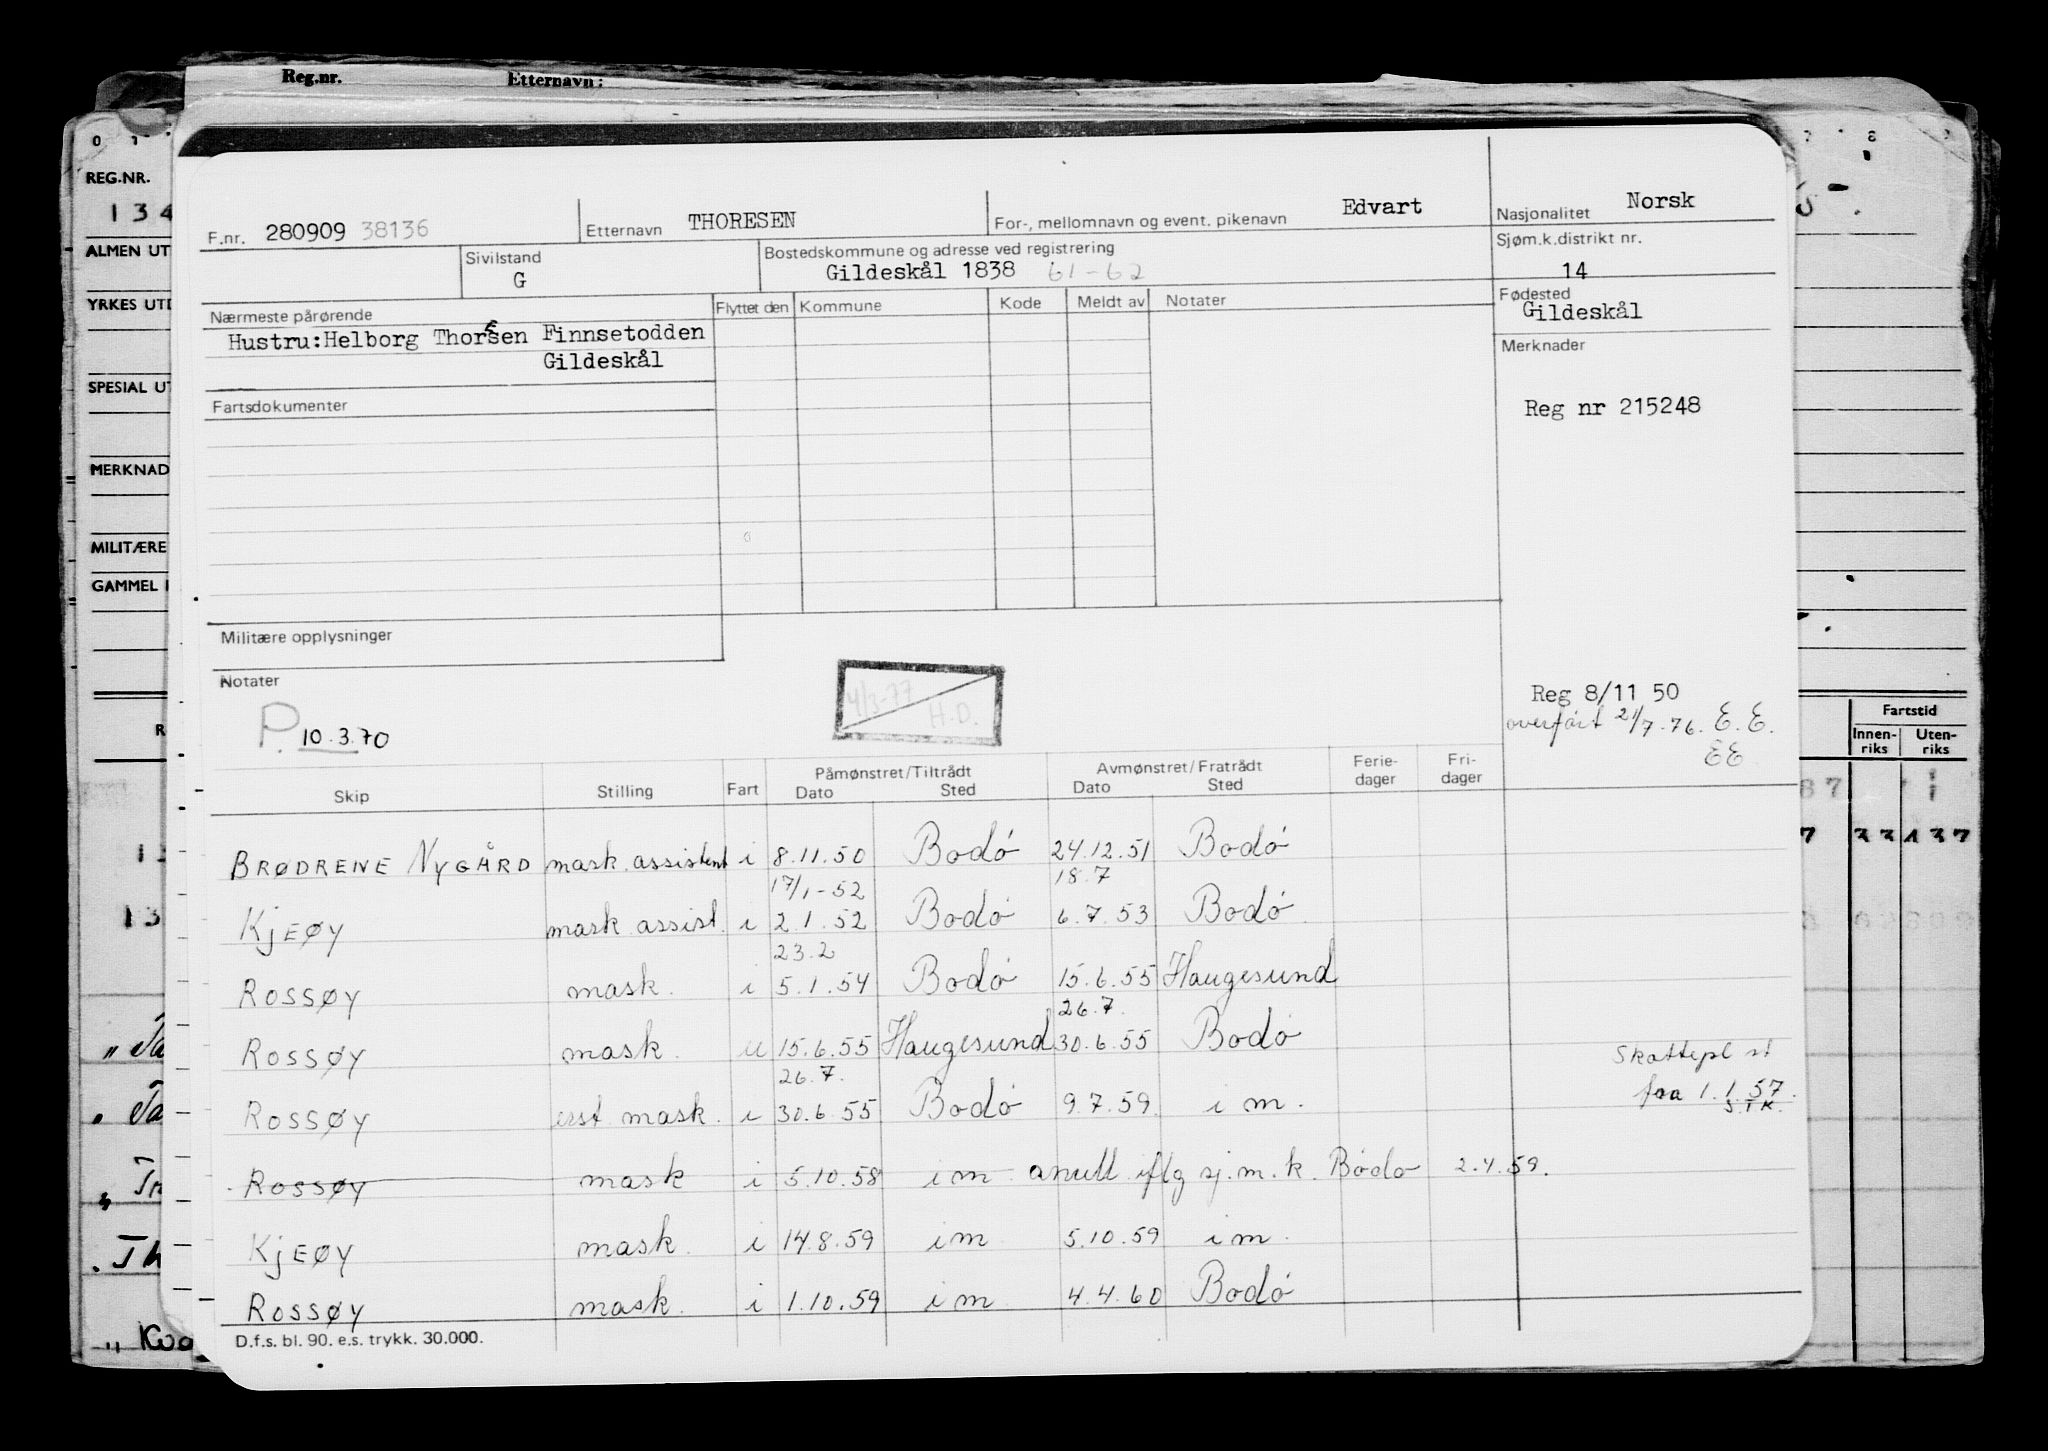 Reg.nr. Etternavn:
REG.NR.
134
ALMEN UT
YRKES UTD
SPESIAL UT
MERKNAD
MILITÆRE
GAMMEL
F.nr. 280909 38136 Etternavn THORESEN For-, mellomnavn og event. pikenavn Edvart Nasjonalitet Norsk
Sivilstand G Bostedskommune og adresse ved registrering Gildeskål 1838 61-62 Sjøm.k.distrikt nr. 14
Nærmeste pårørende Flyttet den Kommune Kode Meldt av Notater Fødested Gildeskål
Hustru: Helborg Thoresen Finnsetodden
Gildeskål
Merknader
Fartsdokumenter
Reg nr 215248
Militære opplysninger
Notater
4/3-77
H.D.
P. 10.3.70
Reg 8/11 50
overført 21/7-76. E.E.
EE
Fartstid
Innen-riks Uten-riks
Skip Stilling Fart Påmønstret/Tiltrådt Dato Sted Avmønstret/Fratrådt Dato Sted Ferie-dager Fri-dager
BRØDRENE NYGÅRD mask.assistent i 8.11.50 Bodø 24.12.51 Bodø
17/1-52 18.7
KJEØY mask.assist. i 2.1.52 Bodø 6.7.53 Bodø
23.2
ROSSØY mask. i 5.1.54 Bodø 15.6.55 Haugesund
26.7.
ROSSØY mask. u 15.6.55 Haugesund 30.6.55 Bodø
26.7.
Skattepl st
ROSSØY erst mask. i 30.6.55 Bodø 9.7.59 i m.
fra 1.1.57.
S.T.K.
ROSSØY mask i 5.10.58 i m anull iflg sj.m.k. Bodø 2.4.59.
KJEØY mask. i 14.8.59 i m 5.10.59 i m.
ROSSØY mask. i 1.10.59 i m 4.4.60 Bodø
D.f.s. bl. 90. e.s. trykk. 30.000.